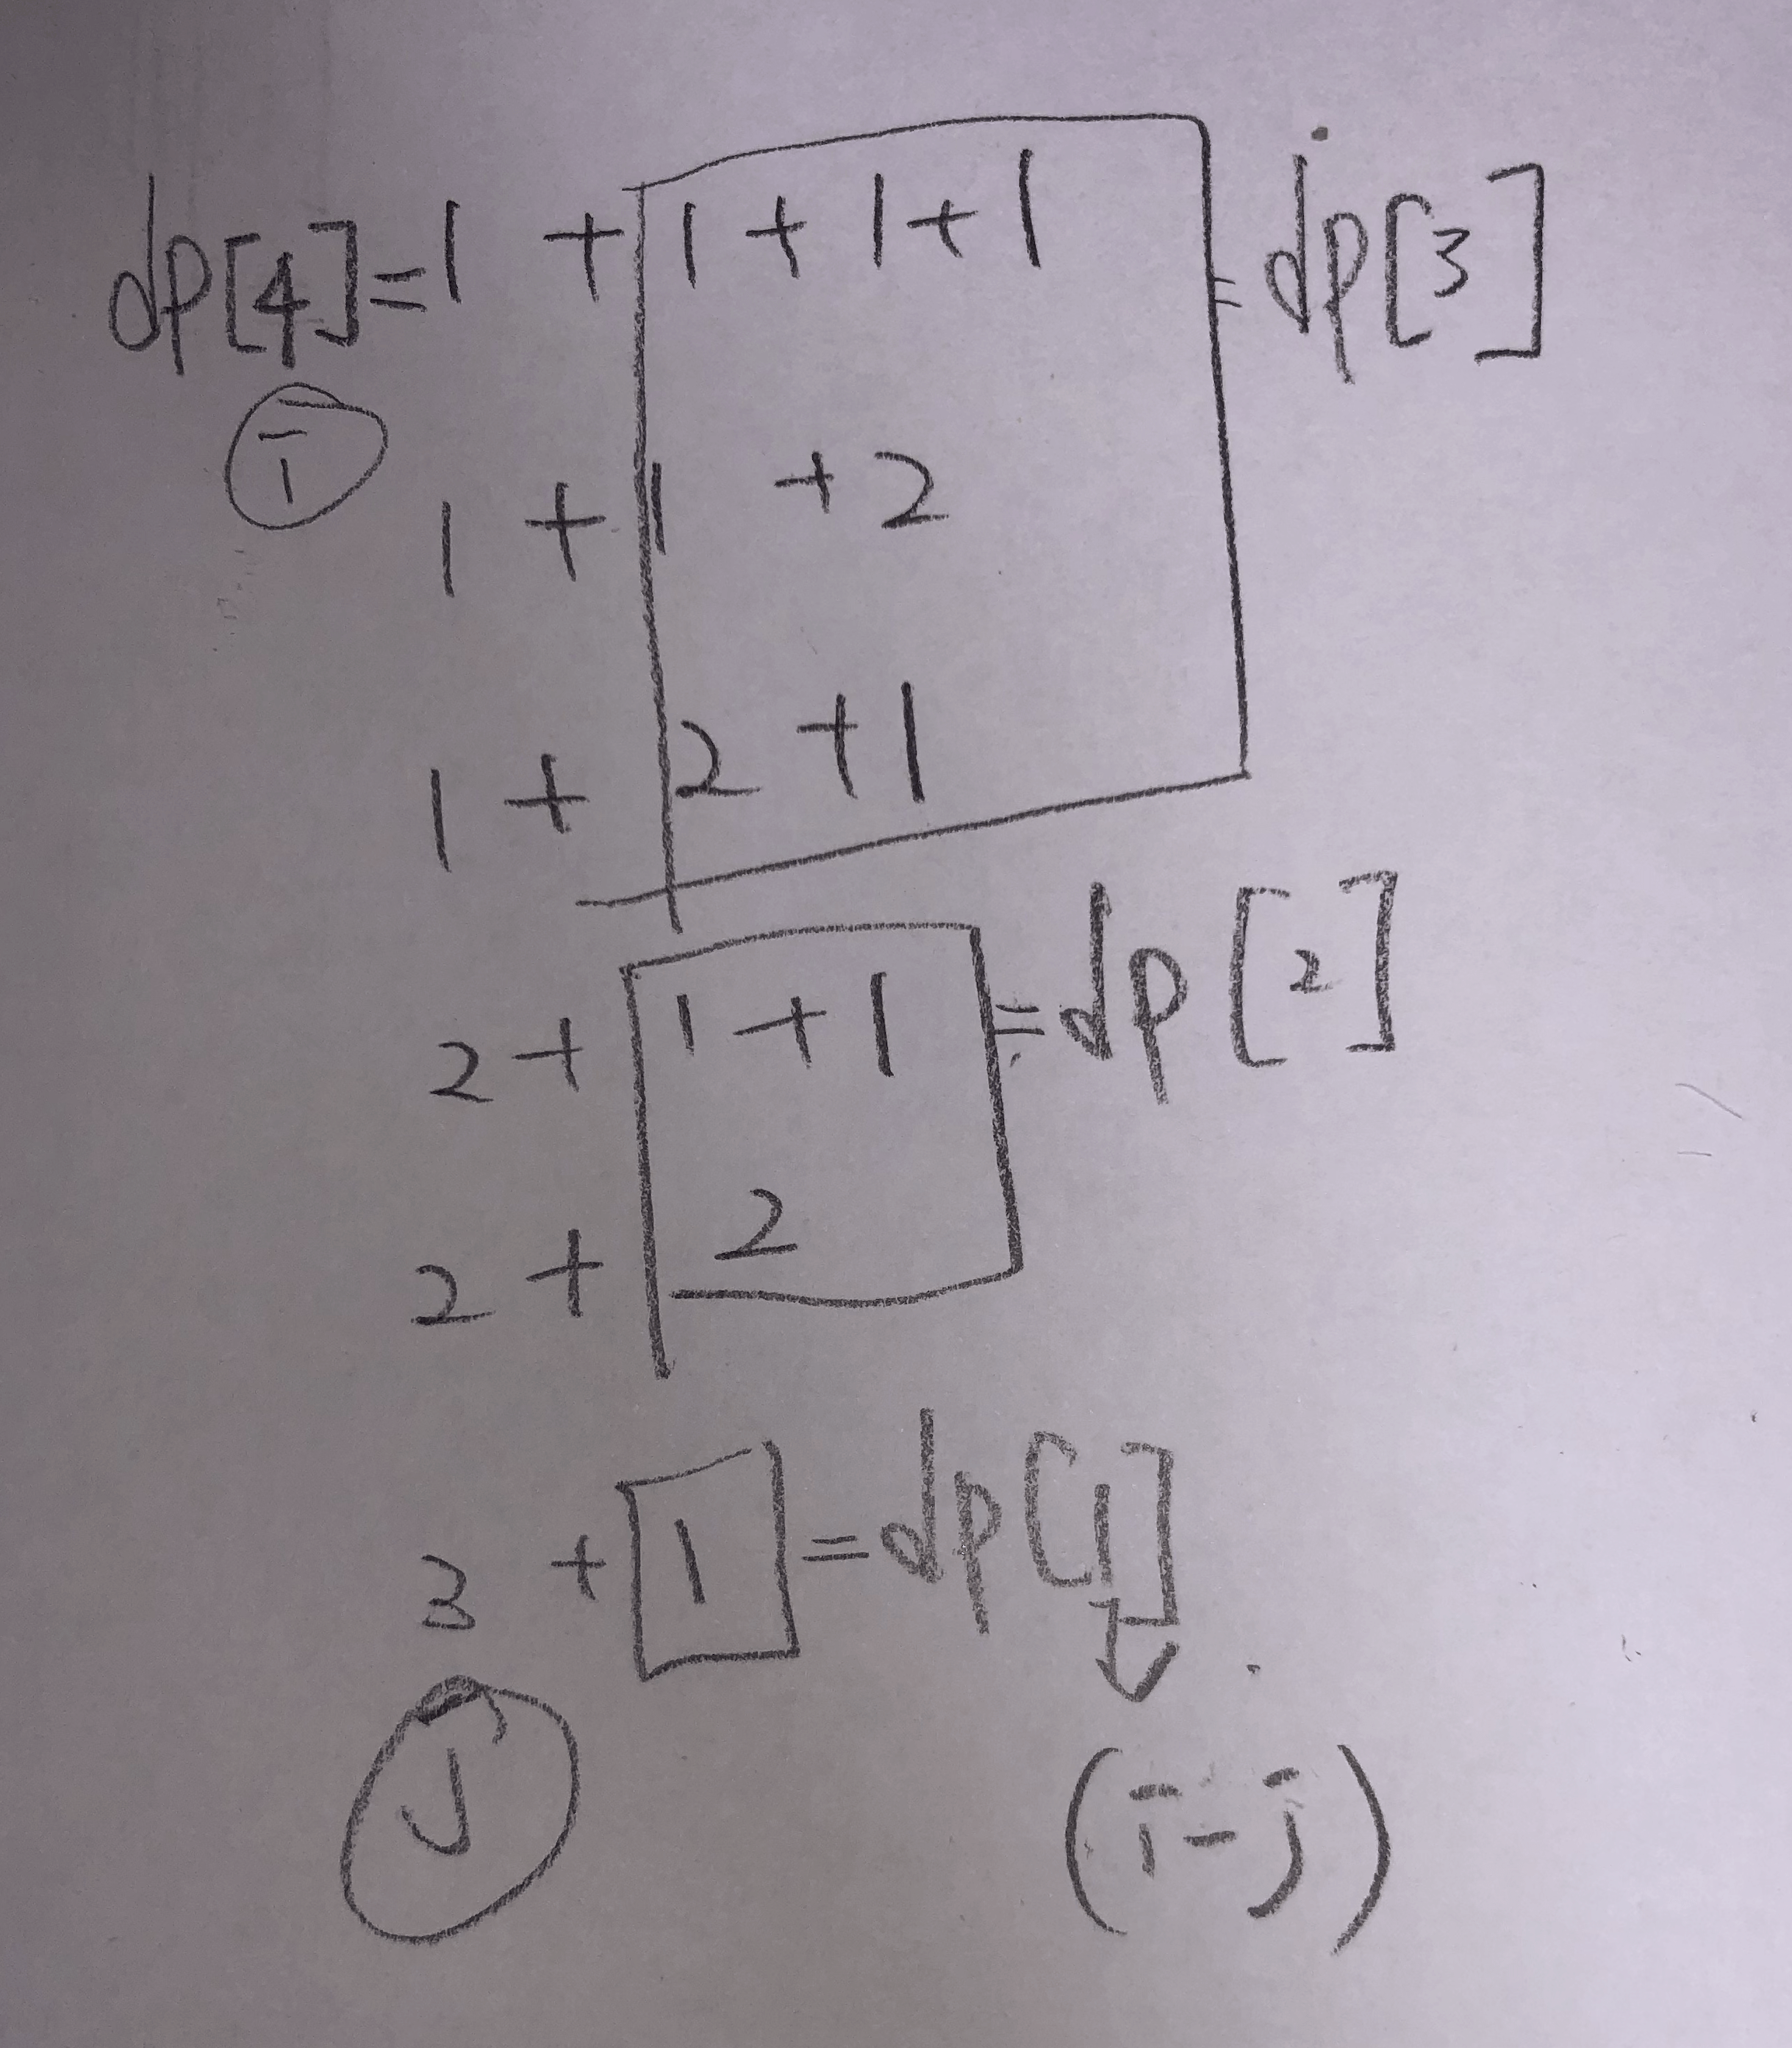 dp[4]=1 + 1 + 1 + 1 = dp[3]
i
1 + 1 + 2
1 + 2 + 1
2 + 1 + 1 = dp[2]
2 + 2
3 + 1 = dp[1]
j (i-j)